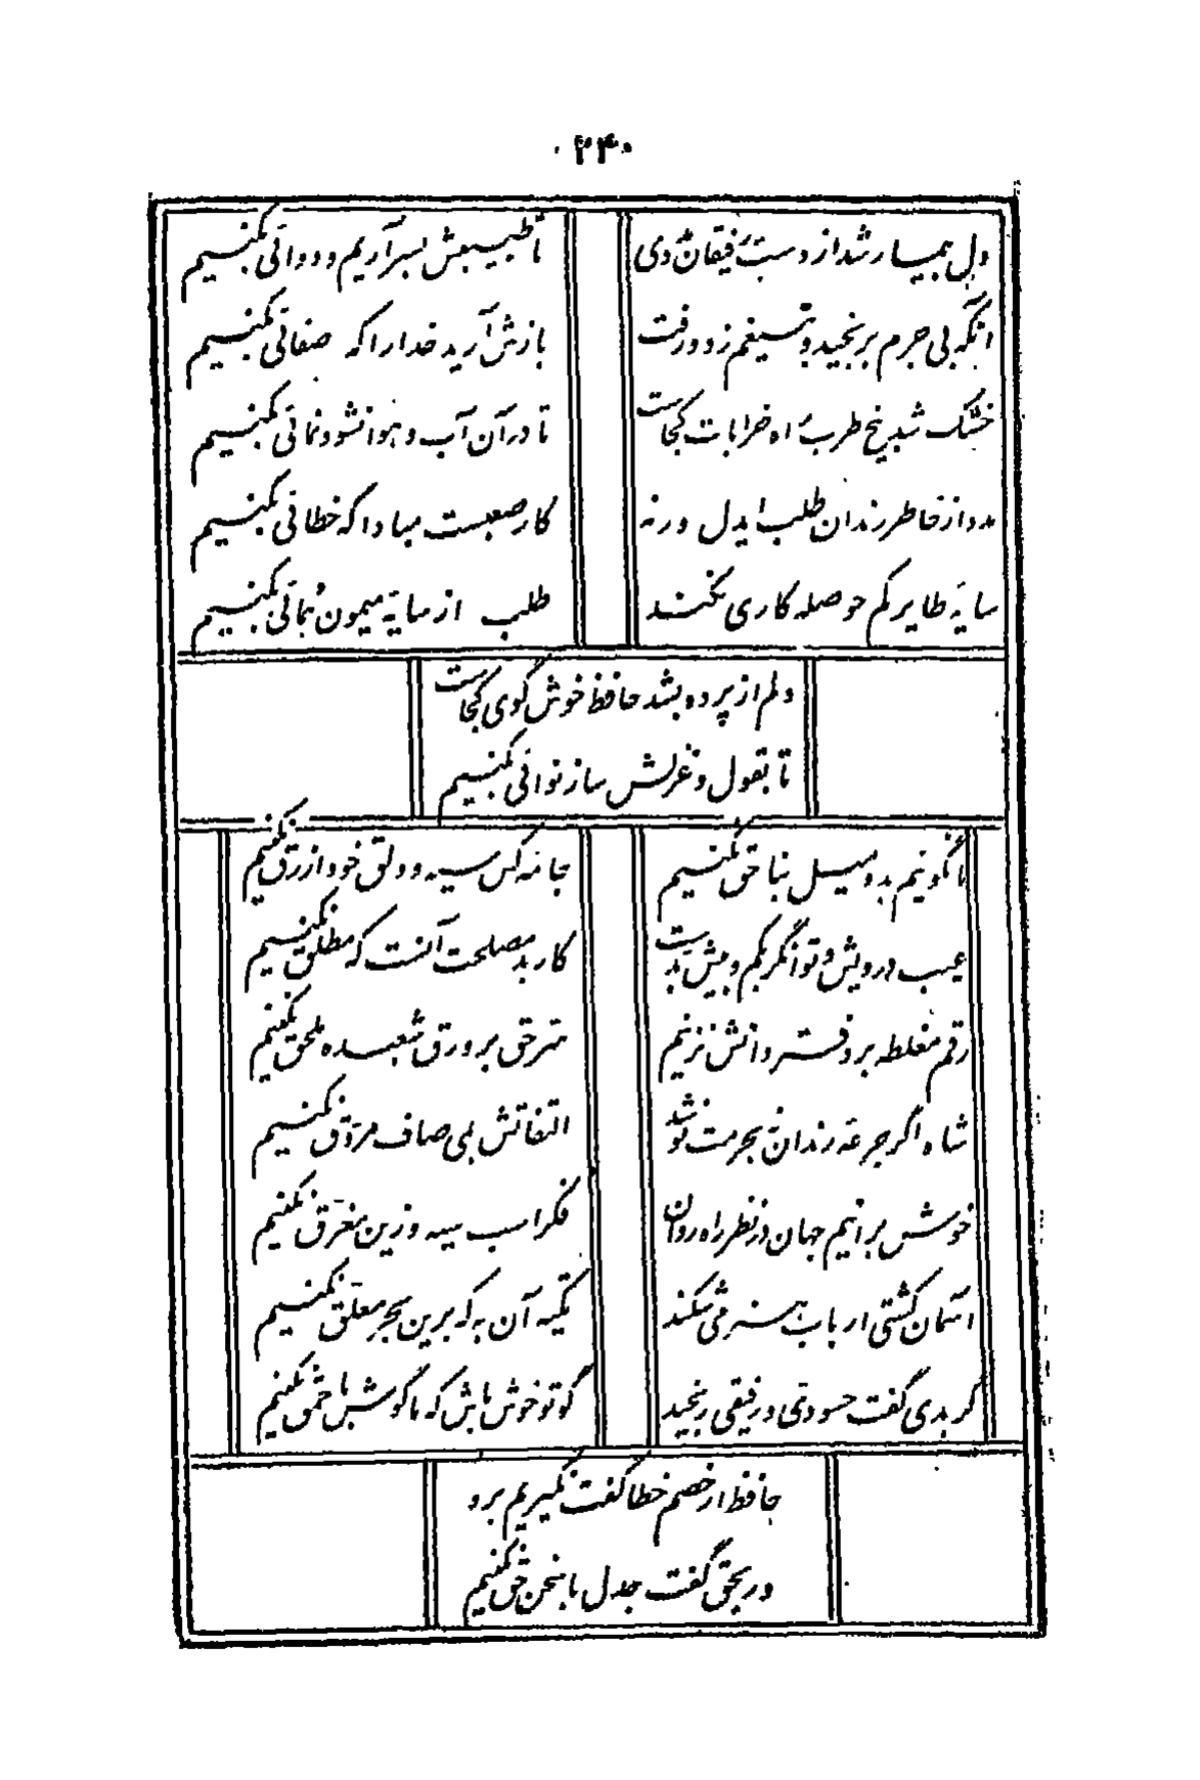 ۲۴۰
دل بیمار شد از دست رفیقان مددی
تا طبیبش بسر آریم و دوائی بکنیم
آنکه بی جرم برنجید و بتیغم زد و رفت
بازش آرید خدارا که صفائی بکنیم
خشک شد بیخ طرب راه خرابات کجاست
تا در آن آب و هوا نشو و نمائی بکنیم
مدد از خاطر رندان طلب ایدل ورنه
کار صعبست مبادا که خطائی بکنیم
سایهٔ طایر کم حوصله کاری نکند
طلب از سایهٔ میمون همائی بکنیم
دلم از پرده بشد حافظ خوش گوی کجاست
تا بقول و غزلش ساز نوائی بکنیم
ما نگوئیم بد و میل بناحق نکنیم
جامهٔ کس سیه و دلق خود ازرق نکنیم
عیب درویش و توانگر بکم و بیش بدست
کار بد مصلحت آنست که مطلق نکنیم
رقم مغلطه بر دفتر دانش نزنیم
سرّ حق بر ورق شعبده ملحق نکنیم
شاه اگر جرعهٔ رندان نه بحرمت نوشد
التفاتش بمی صاف مروّق نکنیم
خوش برانیم جهان در نظر راه روان
فکر اسب سیه و زین مغرّق نکنیم
آسمان کشتی ارباب هنر می شکند
تکیه آن به که برین بحر معلّق نکنیم
گر بدی گفت حسودی و رفیقی رنجید
گو تو خوش باش که ما گوش باحمق نکنیم
حافظ ار خصم خطا گفت نگیریم برو
ور بحق گفت جدل با سخن حق نکنیم